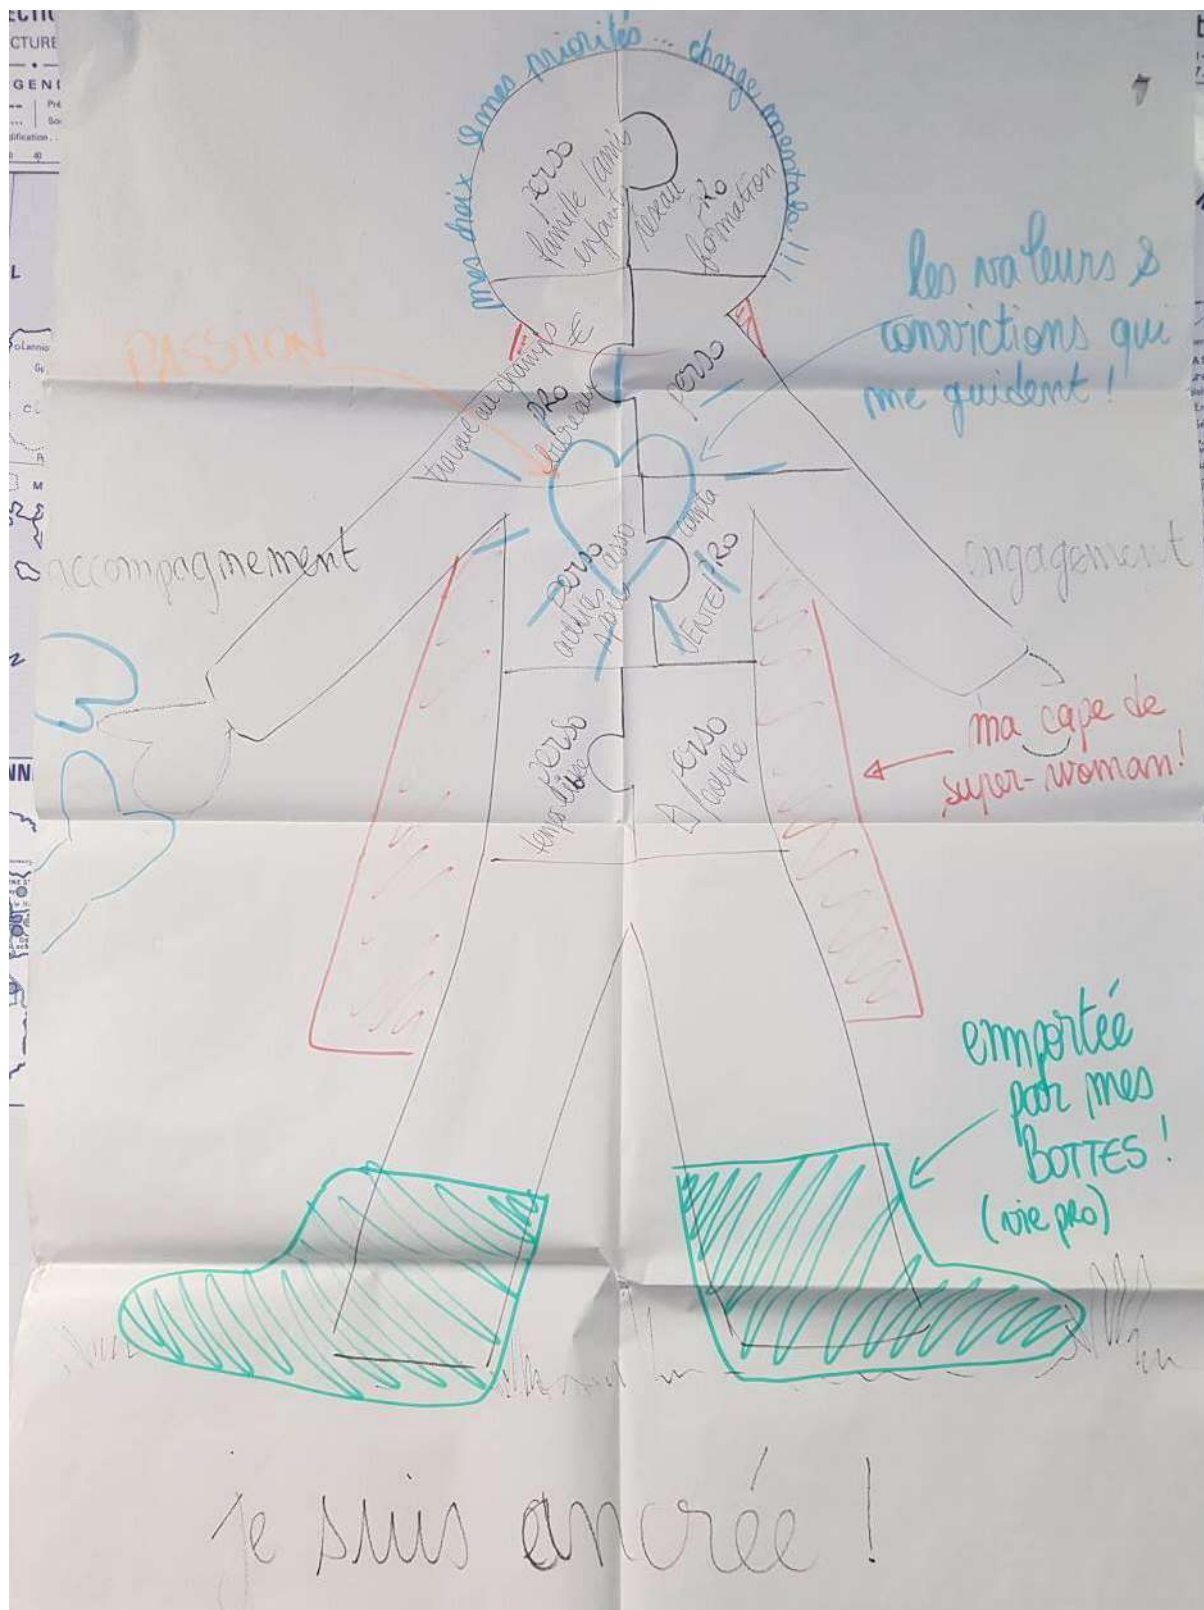 mes choix & mes priorités... charge mentale !!!
perso
famille/amis
enfant
réseau
PRO
formation
PASSION
les valeurs &
convictions qui
me guident !
travaux au champs
€
PRO
bureau
perso
accompagnement
engagement
perso
activités asso
compta
PRO
VENTE
ma cape de
super-woman!
perso
temps libre
perso
/couple
emportée
par mes
BOTTES !
(vie pro)
je suis ancrée !
CTURE